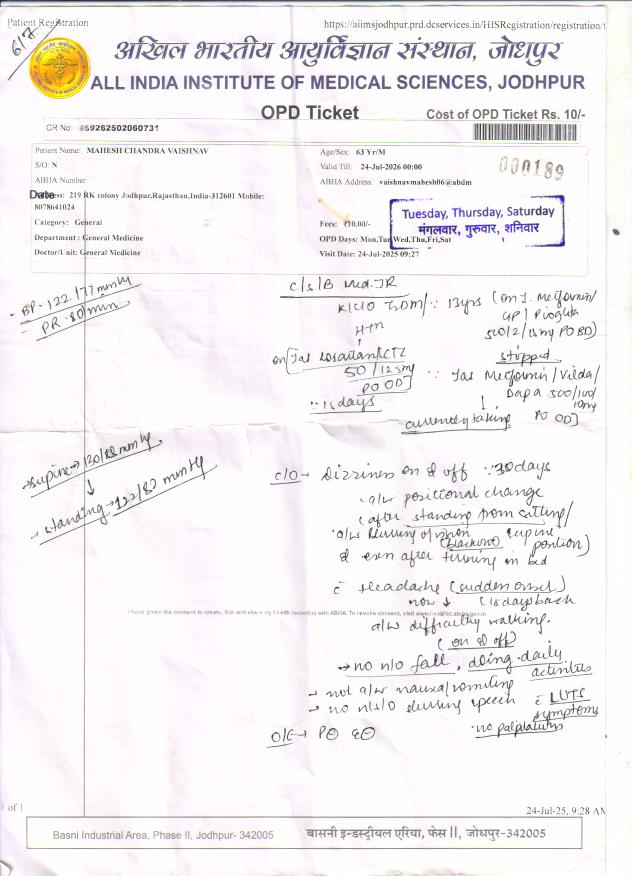 Patient Registration
https://aiimsjodhpur.prd.dcservices.in/HISRegistration/registration/t
6/7
अखिल भारतीय आयुर्विज्ञान संस्थान, जोधपुर
ALL INDIA INSTITUTE OF MEDICAL SCIENCES, JODHPUR
OPD Ticket
Cost of OPD Ticket Rs. 10/-
CR No:
Patient Name: MAHESH CHANDRA VAISHNAV
Age/Sex: 63 Yr/M
S/O: N
Valid Till: 24-Jul-2026 00:00
000189
ABHA Number:
ABHA Address: vaishnavmahesh06@abdm
Date
219 RK colony Jodhpur,Rajasthan,India-312601 Mobile:
8078641024
Category: General
Fees: ₹10.00/-
Tuesday, Thursday, Saturday
मंगलवार, गुरुवार, शनिवार
Department : General Medicine
OPD Days: Mon,Tue,Wed,Thu,Fri,Sat
Doctor/Unit: General Medicine
Visit Date: 24-Jul-2025 09:27
- BP - 122/77 mmHg
- PR - 80/min
c/s/B Med. JR
K/C/O T2DM / ∵ 13yrs (on T. Metformin/
500/2/15mg PO BD)
HTN
on [Tab Losartan/CTZ
50/12.5mg
PO OD]
∵ 15 days
stopped
∵ Tab Metformin/Vilda/
Dapa 500/100/
10mg
PO OD]
↓
currently taking
→ supine → 130/88 mmHg
↓
→ standing → 122/82 mmHg
c/o → Dizziness on & off ∵ 30 days
a/w positional change
(after standing from sitting/
supine position)
a/w blurring of vision
(blackout)
& even after turning in bed
c̄ Headache (sudden onset)
now ↓ (15 days back
I have given the consent to create, link and share my health record(s) with ABHA. To revoke consent, visit
a/w difficulty walking.
(on & off)
→ no h/o fall, doing daily
activities
- not a/w nausea/vomiting
- no h/o slurring speech
c̄ LUTS
symptoms
- no palpitations
O/E →
1 of 1
24-Jul-25, 9:28 AM
Basni Industrial Area, Phase II, Jodhpur- 342005
बासनी इन्डस्ट्रीयल एरिया, फेस II, जोधपुर-342005